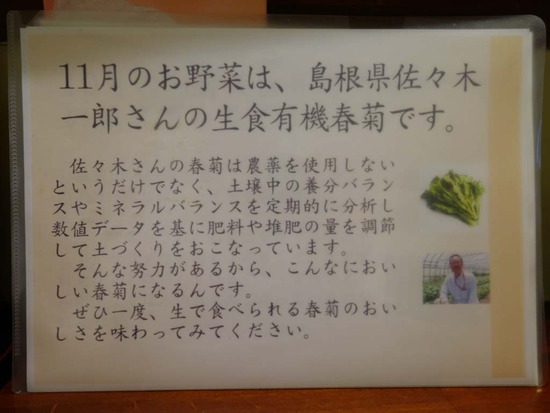 11月のお野菜は、島根県佐々木
一郎さんの生食有機春菊です。
佐々木さんの春菊は農薬を使用しない
というだけでなく、土壌中の養分バラン
スやミネラルバランスを定期的に分析し
数値データを基に肥料や堆肥の量を調節
して土づくりをおこなっています。
そんな努力があるから、こんなにおい
しい春菊になるんです。
ぜひ一度、生で食べられる春菊のおい
しさを味わってみてください。